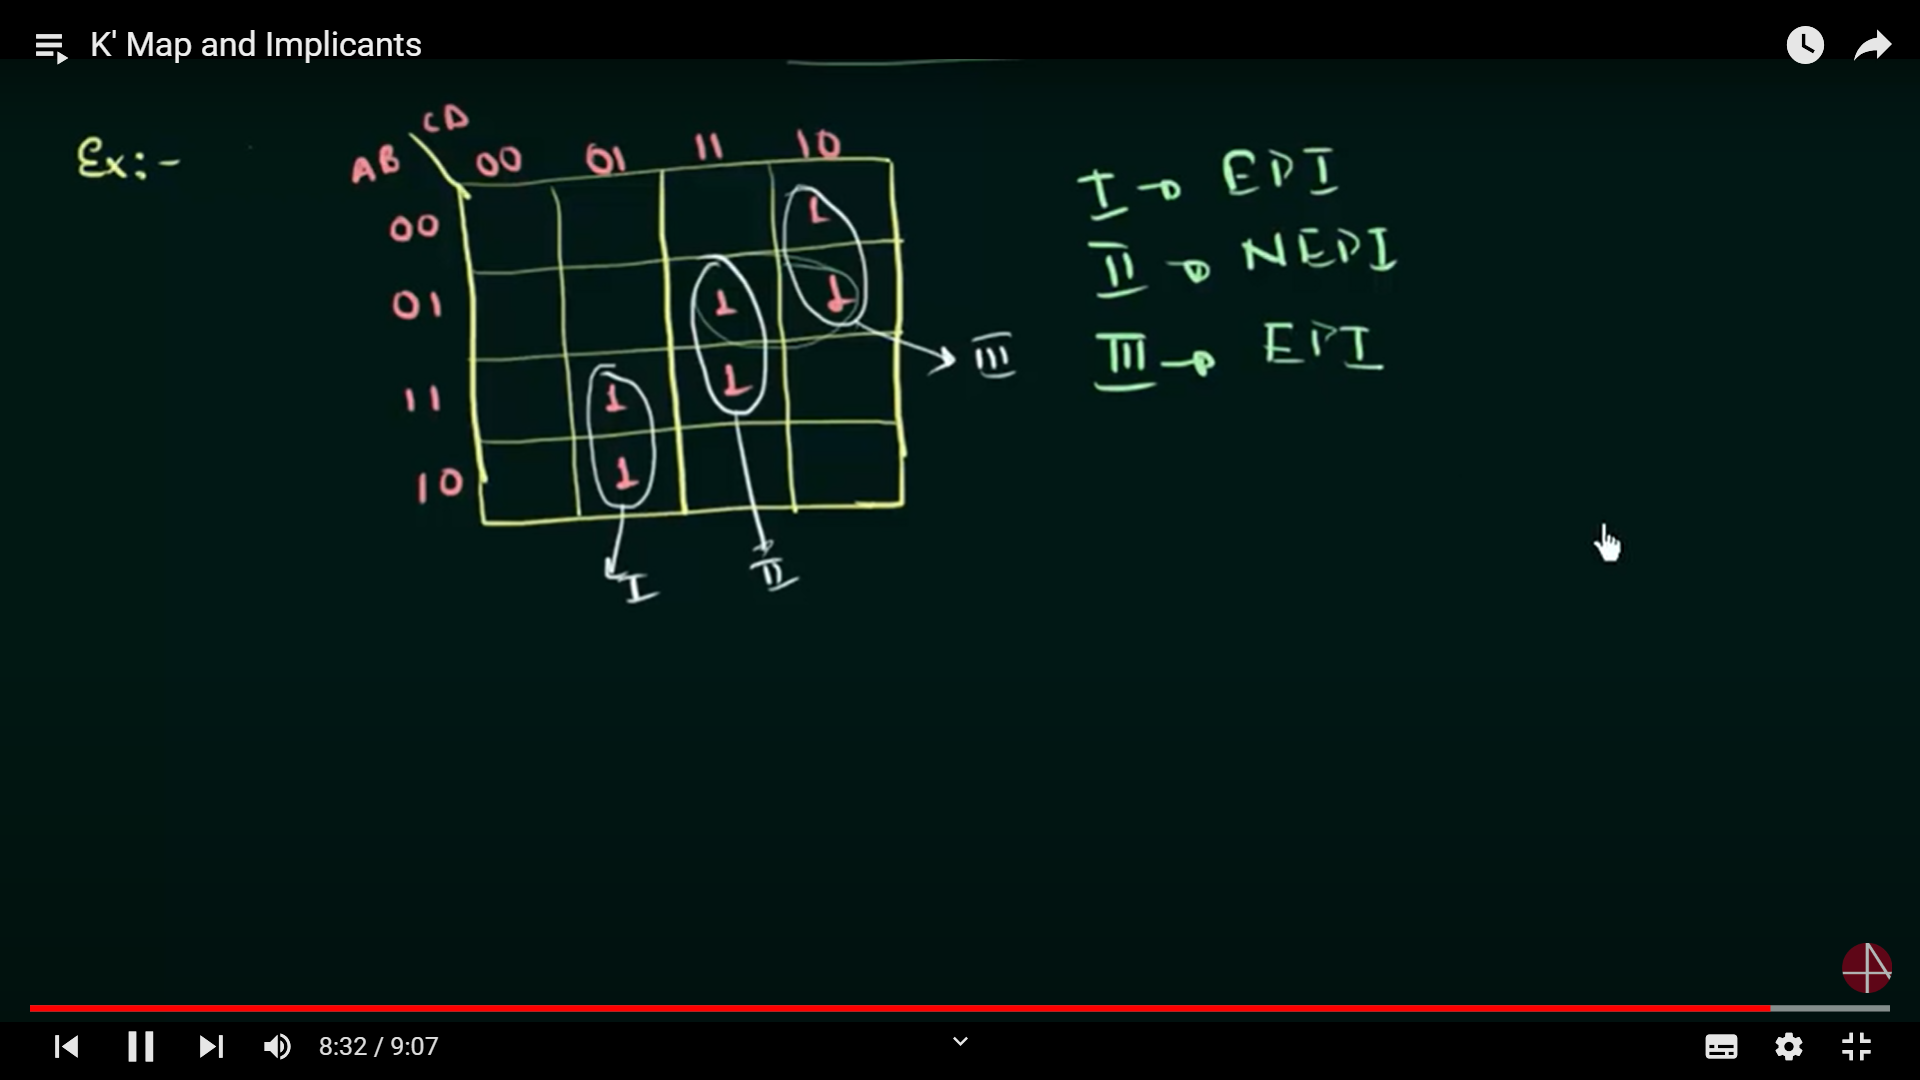 K' Map and Implicants
Ex:-
CD
AB
00 01 11 10
00 1
01 1 1
11 1 1
10 1
I → EPI
II → NEPI
III → EPI
III
I
II
8:32 / 9:07